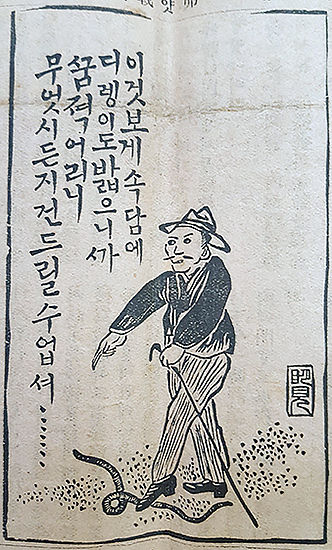 이것보게속담에
디렝이도밟으니ᄭᅡ
ᄭᅮᆷ적어리니
무엇시든지건드릴수업셔……